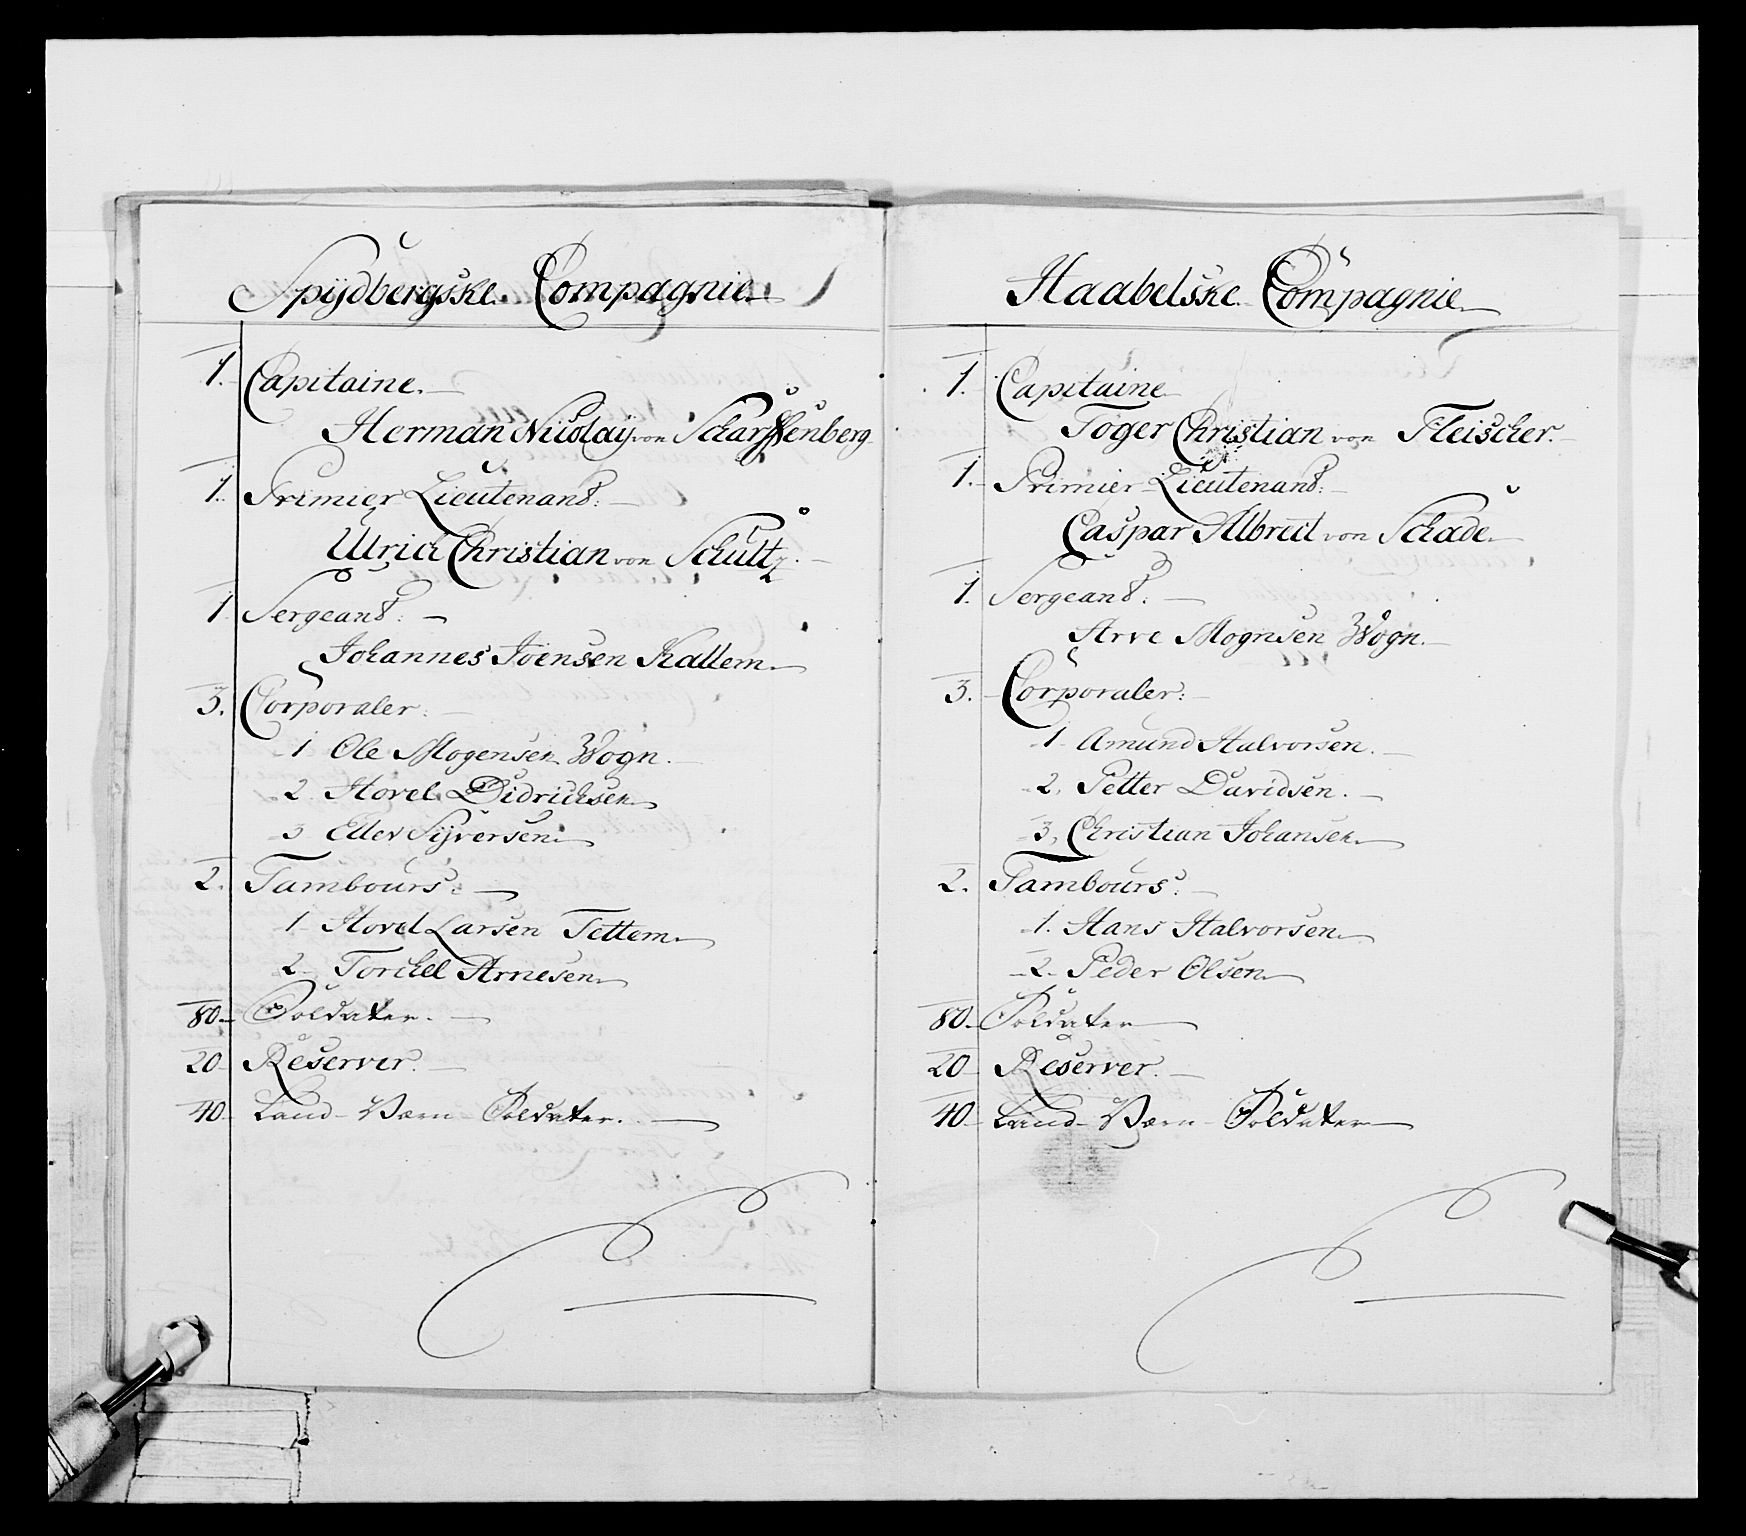 Spydbergske Compagnie
1. Capitaine.
Herman Nicolay von Scharffenberg
1. Primier Lieutenant:
Ulrich Christian von Schultz.
1 Sergeant:
Johannes Joensen Kallem
3. Corporaler:
1 Ole Mogensen Wogn.
2. Hovel Didrichsen
3 Ellev Syversen
2. Tambours:
1 Hovel Larsen Tettem
2 Torchel Arnesen
80 Soldater.
20 Reserver.
40 Land-Værn Soldater.
Haabelske Compagnie
1. Capitaine
Toger Christian von Fleischer.
1. Primier Lieutenant:
Caspar Albrect von Schade
1. Sergeant:
Arve Mognsen Wogn.
3. Corporaler:
1 Amund Halvorsen.
2. Petter Davidsen.
3. Christian Johansen
2. Tambours:
1. Hans Halvorsen
2. Peder Olsen
80. Soldater
20 Reserver.
40. Land-Værn-Soldater